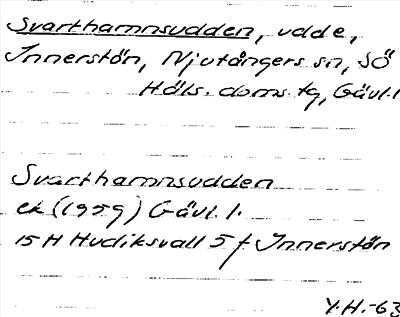 Svarthamnsudden, udde,
Innerstön, Njutångers sn, SÖ
Häls. doms. tg, Gävl. l
Svarthamnsudden
ek (1959) Gävl. l.
15 H Hudiksvall 5 f Innerstön
Y.H.-63